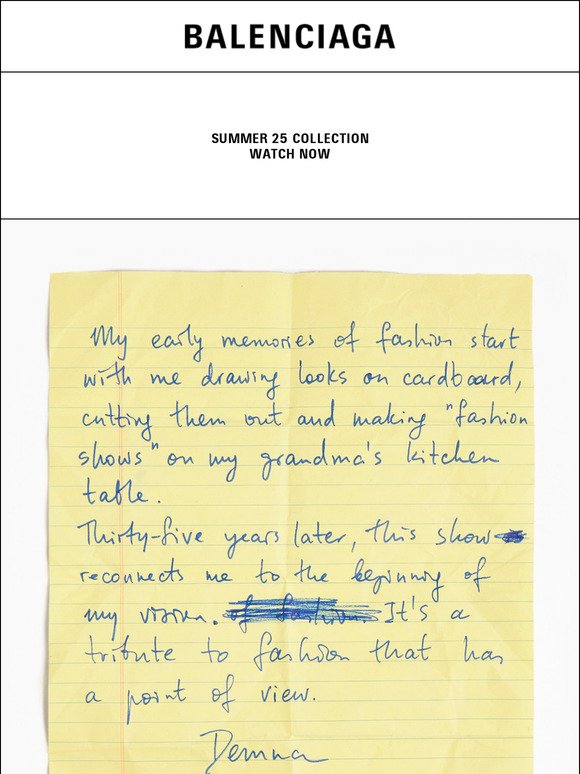 BALENCIAGA
SUMMER 25 COLLECTION
WATCH NOW
My early memories of fashion start
with me drawing looks on cardboard,
cutting them out and making "fashion
shows" on my grandma's kitchen
table.
Thirty-five years later, this show
reconnects me to the beginning of
my vision. of fashion. It's a
tribute to fashion that has
a point of view.
Demna